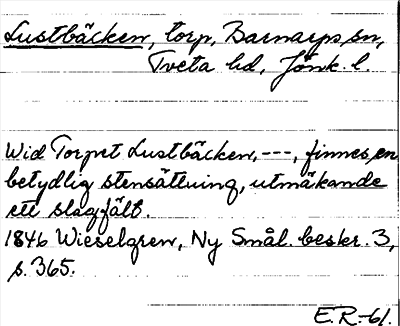 Lustbäcken, torp, Barnarps sn,
Tveta hd, Jönk. l.
Wid Torpet Lustbäcken, ---, finnes en
betydlig stensättning, utmäkande
ett slagfält.
1846 Wieselgren, Ny Smål. beskr. 3,
s. 365.
E.R.-61.